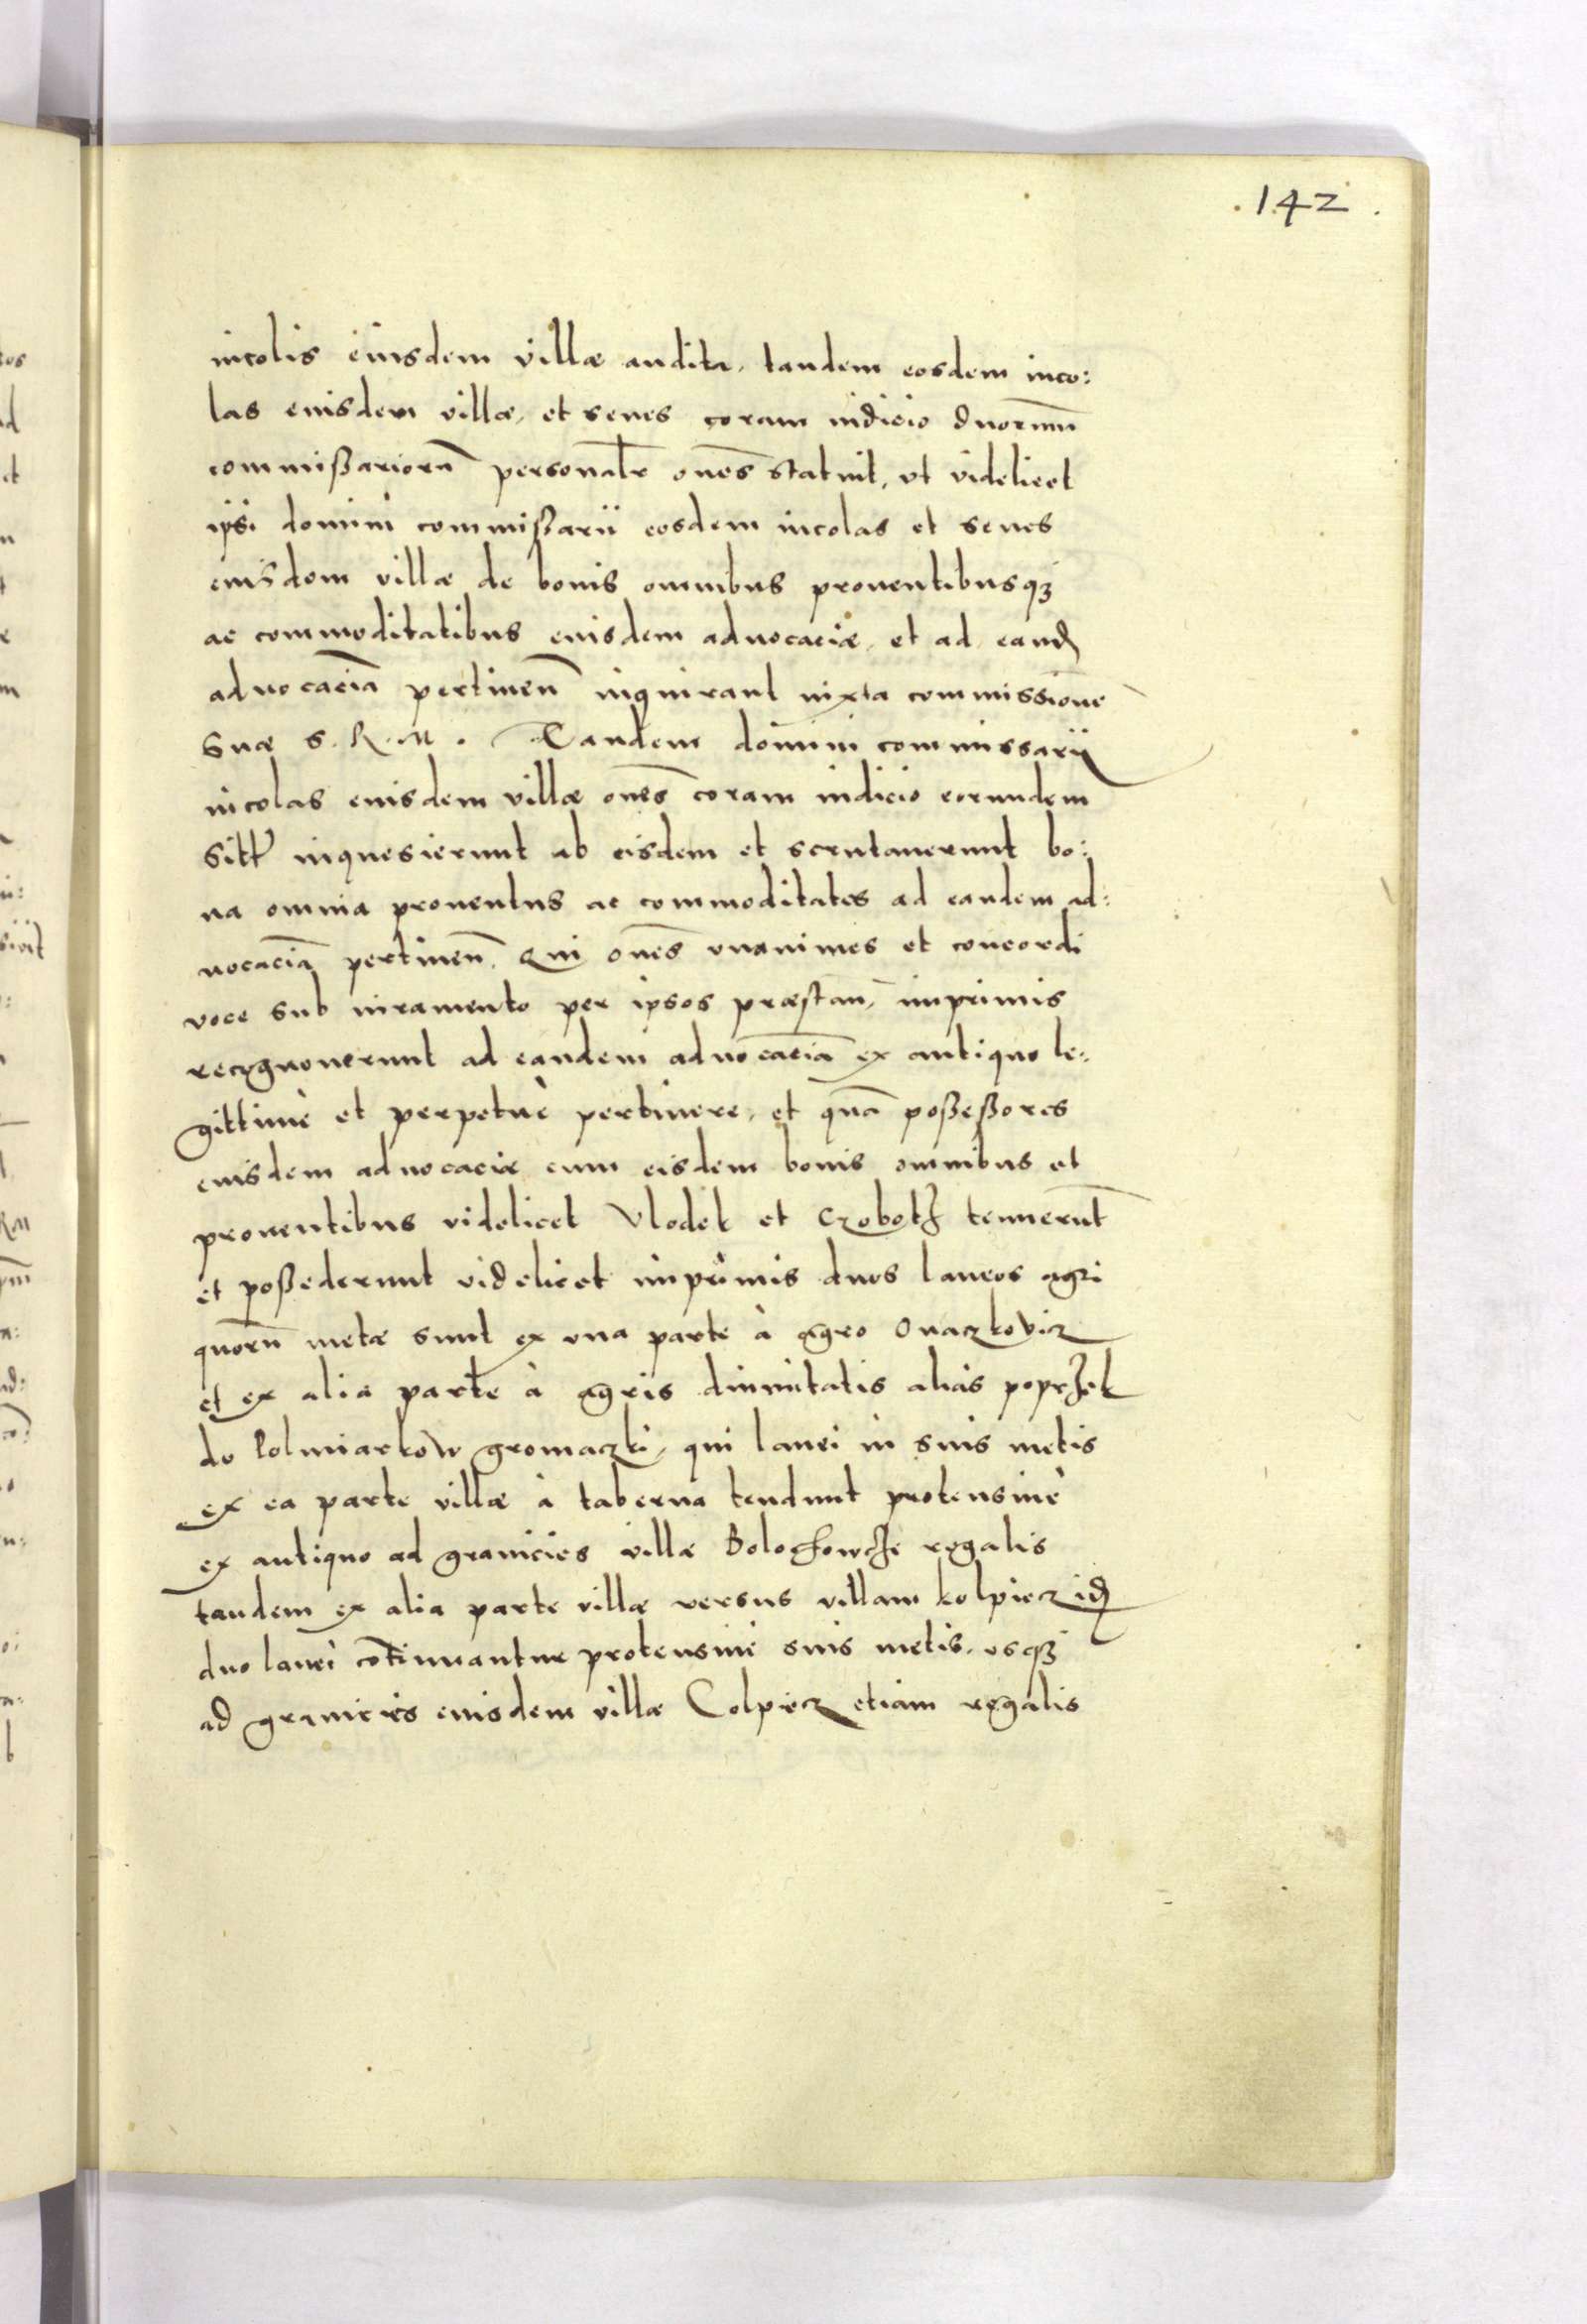 142
incolis eiusdem villæ audita, tandem eosdem inco:
las eiusdem villæ, et senes coram iudicio duorum̄
com̄mißariorū personalr̄ onēs statuit, vt videlicet
ipsi domini commißarii eosdem incolas et senes
eiusdem villæ de bonis omnibus prouentibusqꝫ
ac commoditatibus eiusdem aduocaciæ, et ad eand
aduocaciā pertineñ inquirant iuxta commissionē
suæ S. R. M. Tandem domini commissarii
incolas eiusdem villæ onēs coram iudicio eorundem
sitt inquesierunt ab eisdem et scrutauerunt bo:
na omnia prouentus ac commoditates ad eandem ad:
uocaciā pertineñ. Qui onēs vnanimes et concordi
voce sub iuramento per ipsos præstañ, imprimis
recognouerunt ad eandem aduocaciā ex antiquo le:
gittimè et perpetuè pertinere, et quā poßeßores
eiusdem aduocaciæ cum eisdem bonis omnibus et
prouentibus videlicet Vlodek et Czobotȝ tenuerūt
et poßederunt videlicet imprimis duos laneos agri
quorū metæ sunt ex vna parte à agro Onaczkovicz
et ex alia parte à agris diuinitatis alias poprzek
do Polmiarkow gromaczki, qui lanei in suis metis
ex ea parte villæ à taberna tendunt protensiuè
ex antiquo ad granicies villæ Bolochowcze regalis
tandem ex alia parte villæ versus villam kolpiecz iid
duo lanei cōtinuantur protensiuè suis metis, vsqꝫ
ad granicies eiusdem villæ Colpiecz etiam regalis